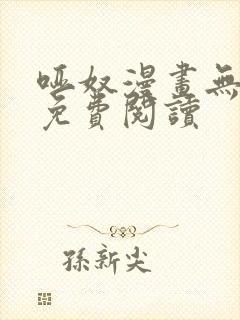 啞奴漫畫無
免費閱讀
孫新尖